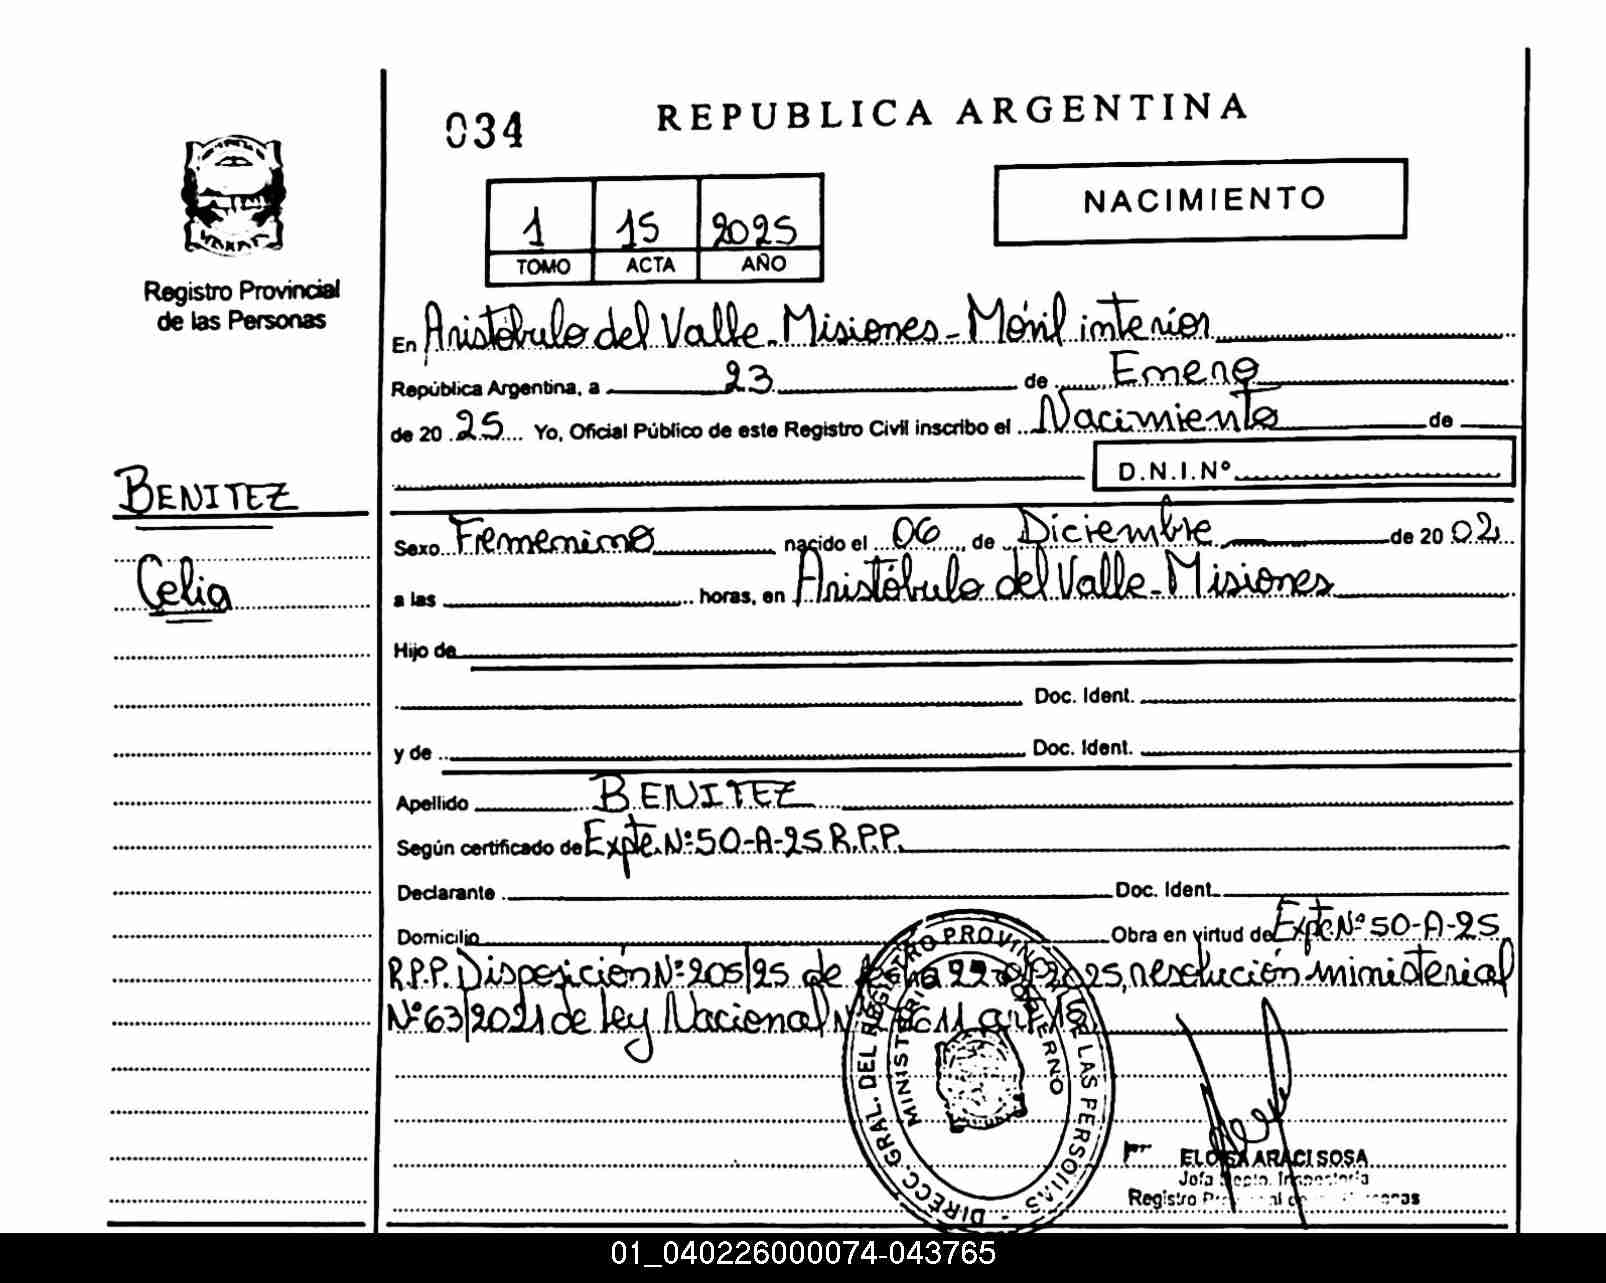 034
REPUBLICA ARGENTINA
NACIMIENTO
1 15 2025
TOMO ACTA AÑO
Registro Provincial
de las Personas
En Aristobulo del Valle. Misiones - Móvil interior
República Argentina, a 23 de Enero
de 20 25 Yo, Oficial Público de este Registro Civil inscribo el Nacimiento de
D.N.I.Nº
BENITEZ
Celia
Sexo Femenino nacido el 06 de Diciembre de 20 02
a las horas, en Aristóbulo del Valle - Misiones
Hijo de
Doc. Ident.
y de Doc. Ident.
Apellido BENITEZ
Según certificado de Expte. Nº 50-A-25 R.P.P.
Declarante Doc. Ident.
Domicilio Obra en virtud de Expte Nº 50-A-25
R.P.P. Disposición Nº 205/25 de fecha 22 2025, resolución ministerial
Nº 63/2021 de Ley Nacional art
DIRECC. GRAL. DEL REGISTRO PROVINCIAL DE LAS PERSONAS
MINISTERIO DE GOBIERNO
ELOISA ARACI SOSA
Jefa Depto. Inspectoría
Registro Provincial de las Personas
01_040226000074-043765